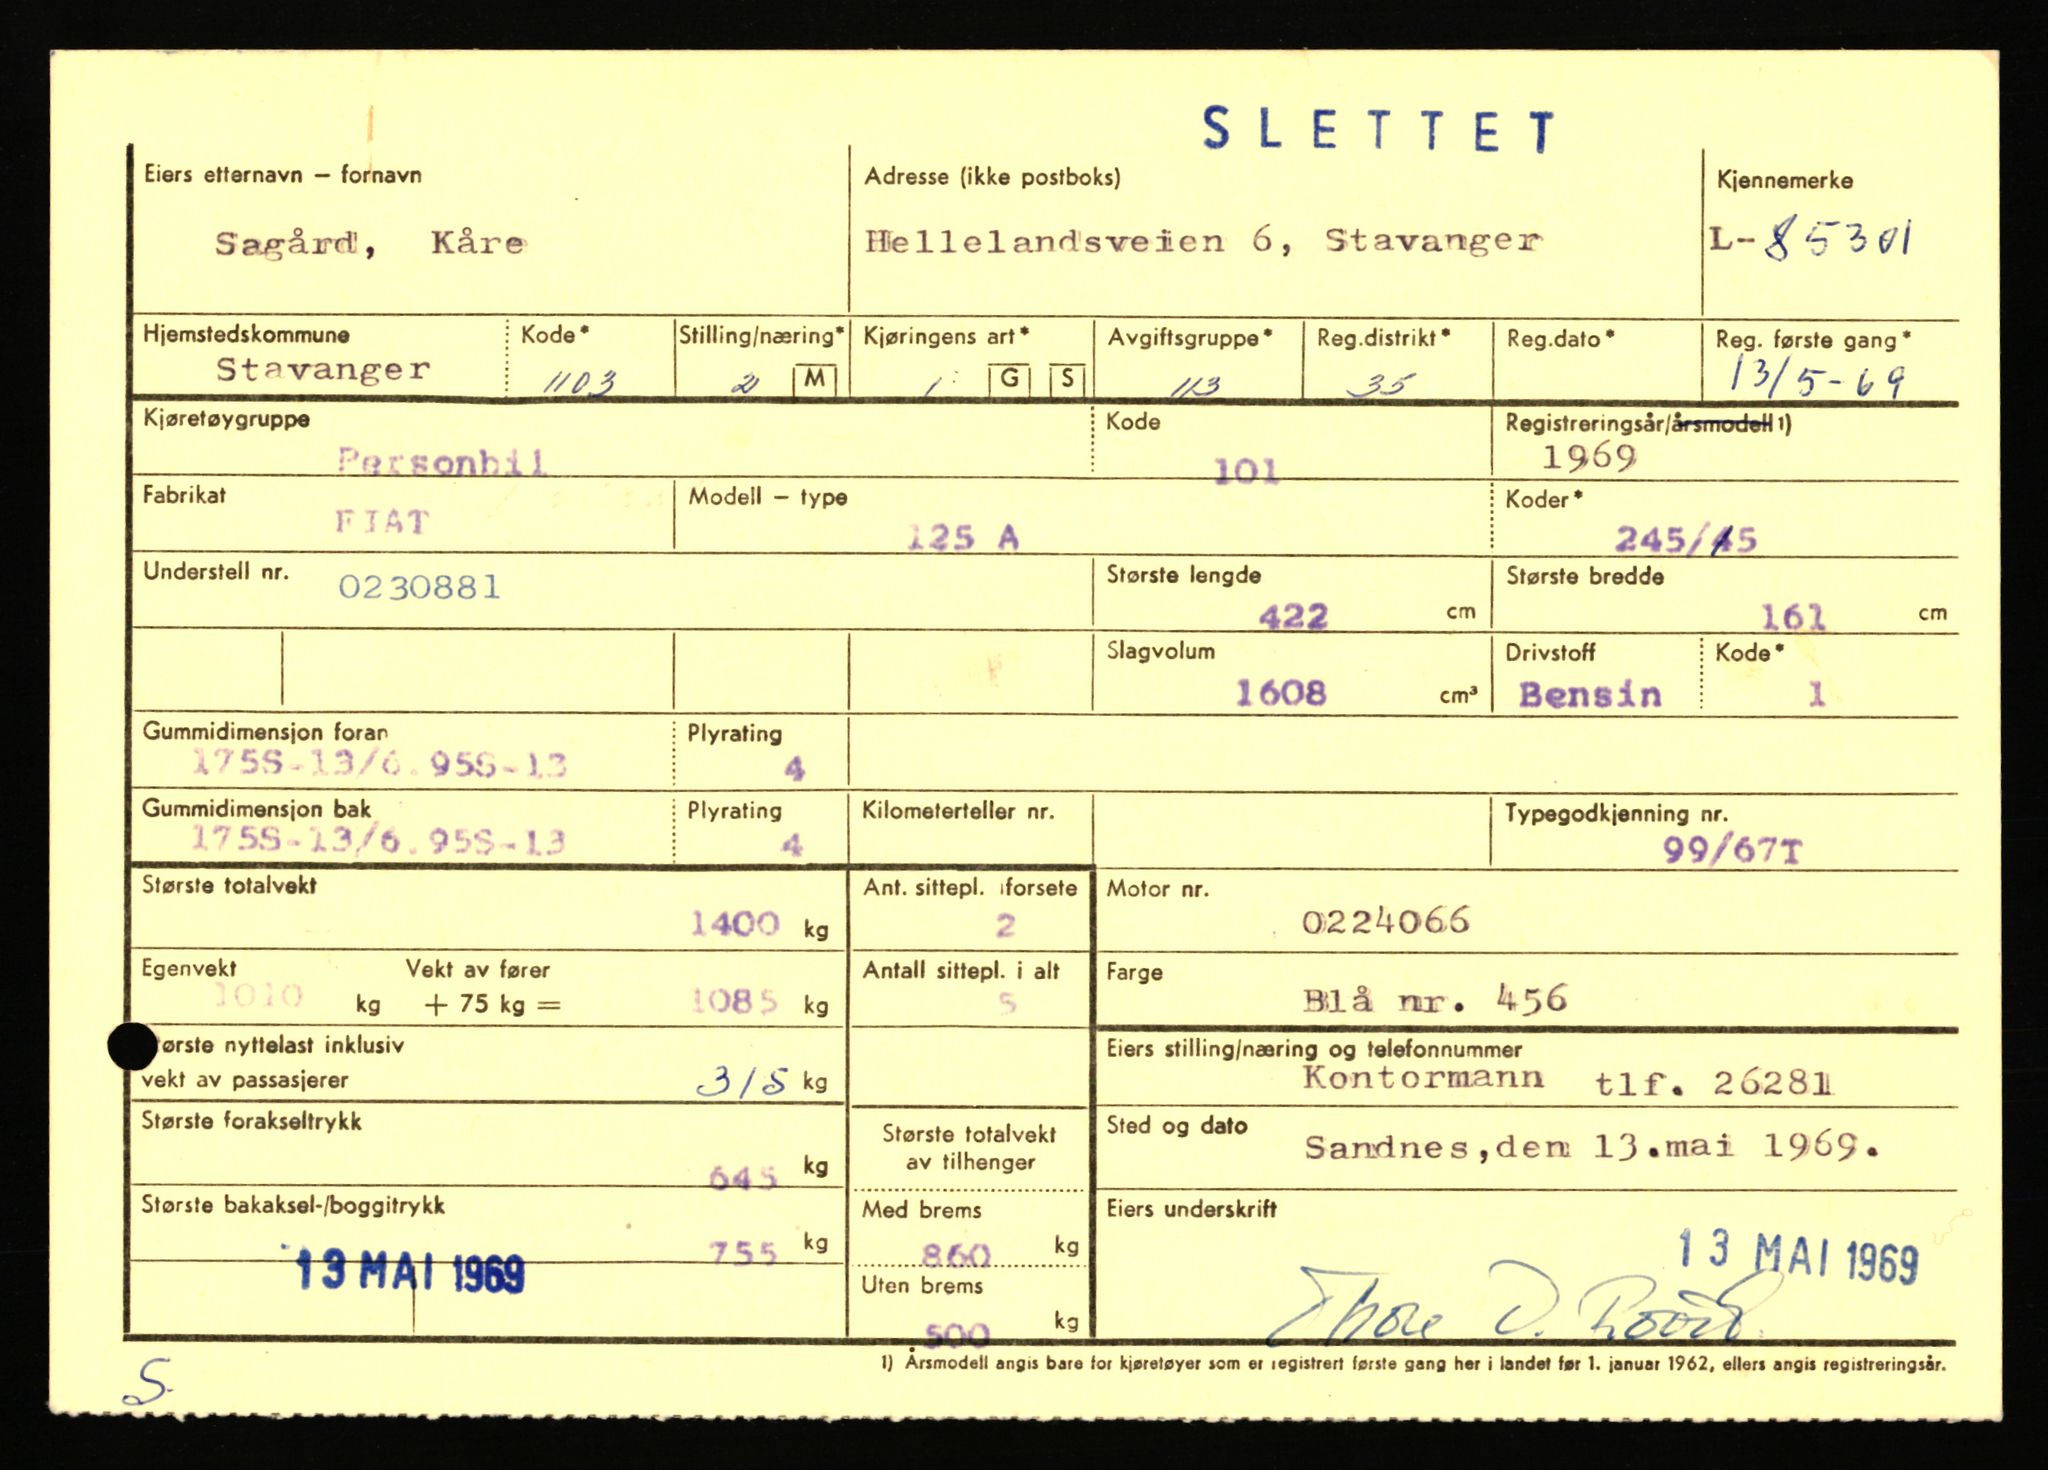 SLETTET
Eiers etternavn – fornavn
Sagård, Kåre
Adresse (ikke postboks)
Hellelandsveien 6, Stavanger
Kjennemerke
L-85301
Hjemstedskommune
Stavanger
Kode*
1103
Stilling/næring*
2 M
Kjøringens art*
1 G S
Avgiftsgruppe*
113
Reg.distrikt*
35
Reg.dato*
Reg. første gang*
13/5-69
Kjøretøygruppe
Personbil
Kode
101
Registreringsår/årsmodell 1)
1969
Fabrikat
FIAT
Modell – type
125 A
Koder*
245/15
Understell nr.
0230881
Største lengde
422 cm
Største bredde
161 cm
Slagvolum
1608 cm³
Drivstoff
Bensin
Kode*
1
Gummidimensjon foran
175S-13/6.95S-13
Plyrating
4
Gummidimensjon bak
175S-13/6.95S-13
Plyrating
4
Kilometerteller nr.
Typegodkjenning nr.
99/67T
Største totalvekt
1400 kg
Ant. sittepl. i forsete
2
Motor nr.
0224066
Egenvekt
1010 kg
Vekt av fører
+ 75 kg = 1085 kg
Antall sittepl. i alt
5
Farge
Blå nr. 456
ørste nyttelast inklusiv
vekt av passasjerer 315 kg
Eiers stilling/næring og telefonnummer
Kontormann tlf. 26281
Største forakseltrykk
645 kg
Største totalvekt
av tilhenger
Sted og dato
Sandnes,den 13.mai 1969.
Største bakaksel-/boggitrykk
755 kg
13 MAI 1969
Med brems
860 kg
Uten brems
500 kg
Eiers underskrift
13 MAI 1969
1) Årsmodell angis bare for kjøretøyer som er registrert første gang her i landet før 1. januar 1962, ellers angis registreringsår.
S.